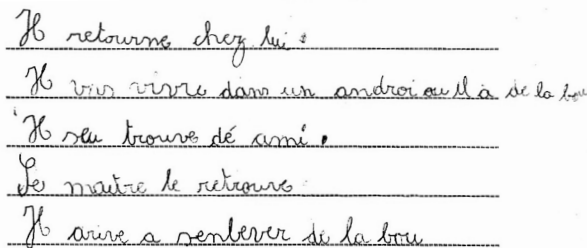 Il retourne chez lui.
Il vas vivre dans un androi ou il à de la bou
Il seu trouve dé ami.
Le maitre le retrouve
Il arive a senlever de la bou